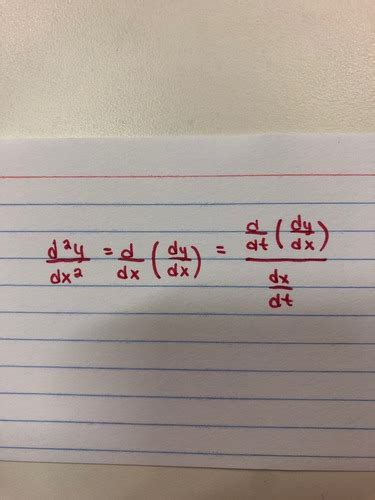 d²y/dx² = d/dx (dy/dx) = (d/dt (dy/dx)) / (dx/dt)